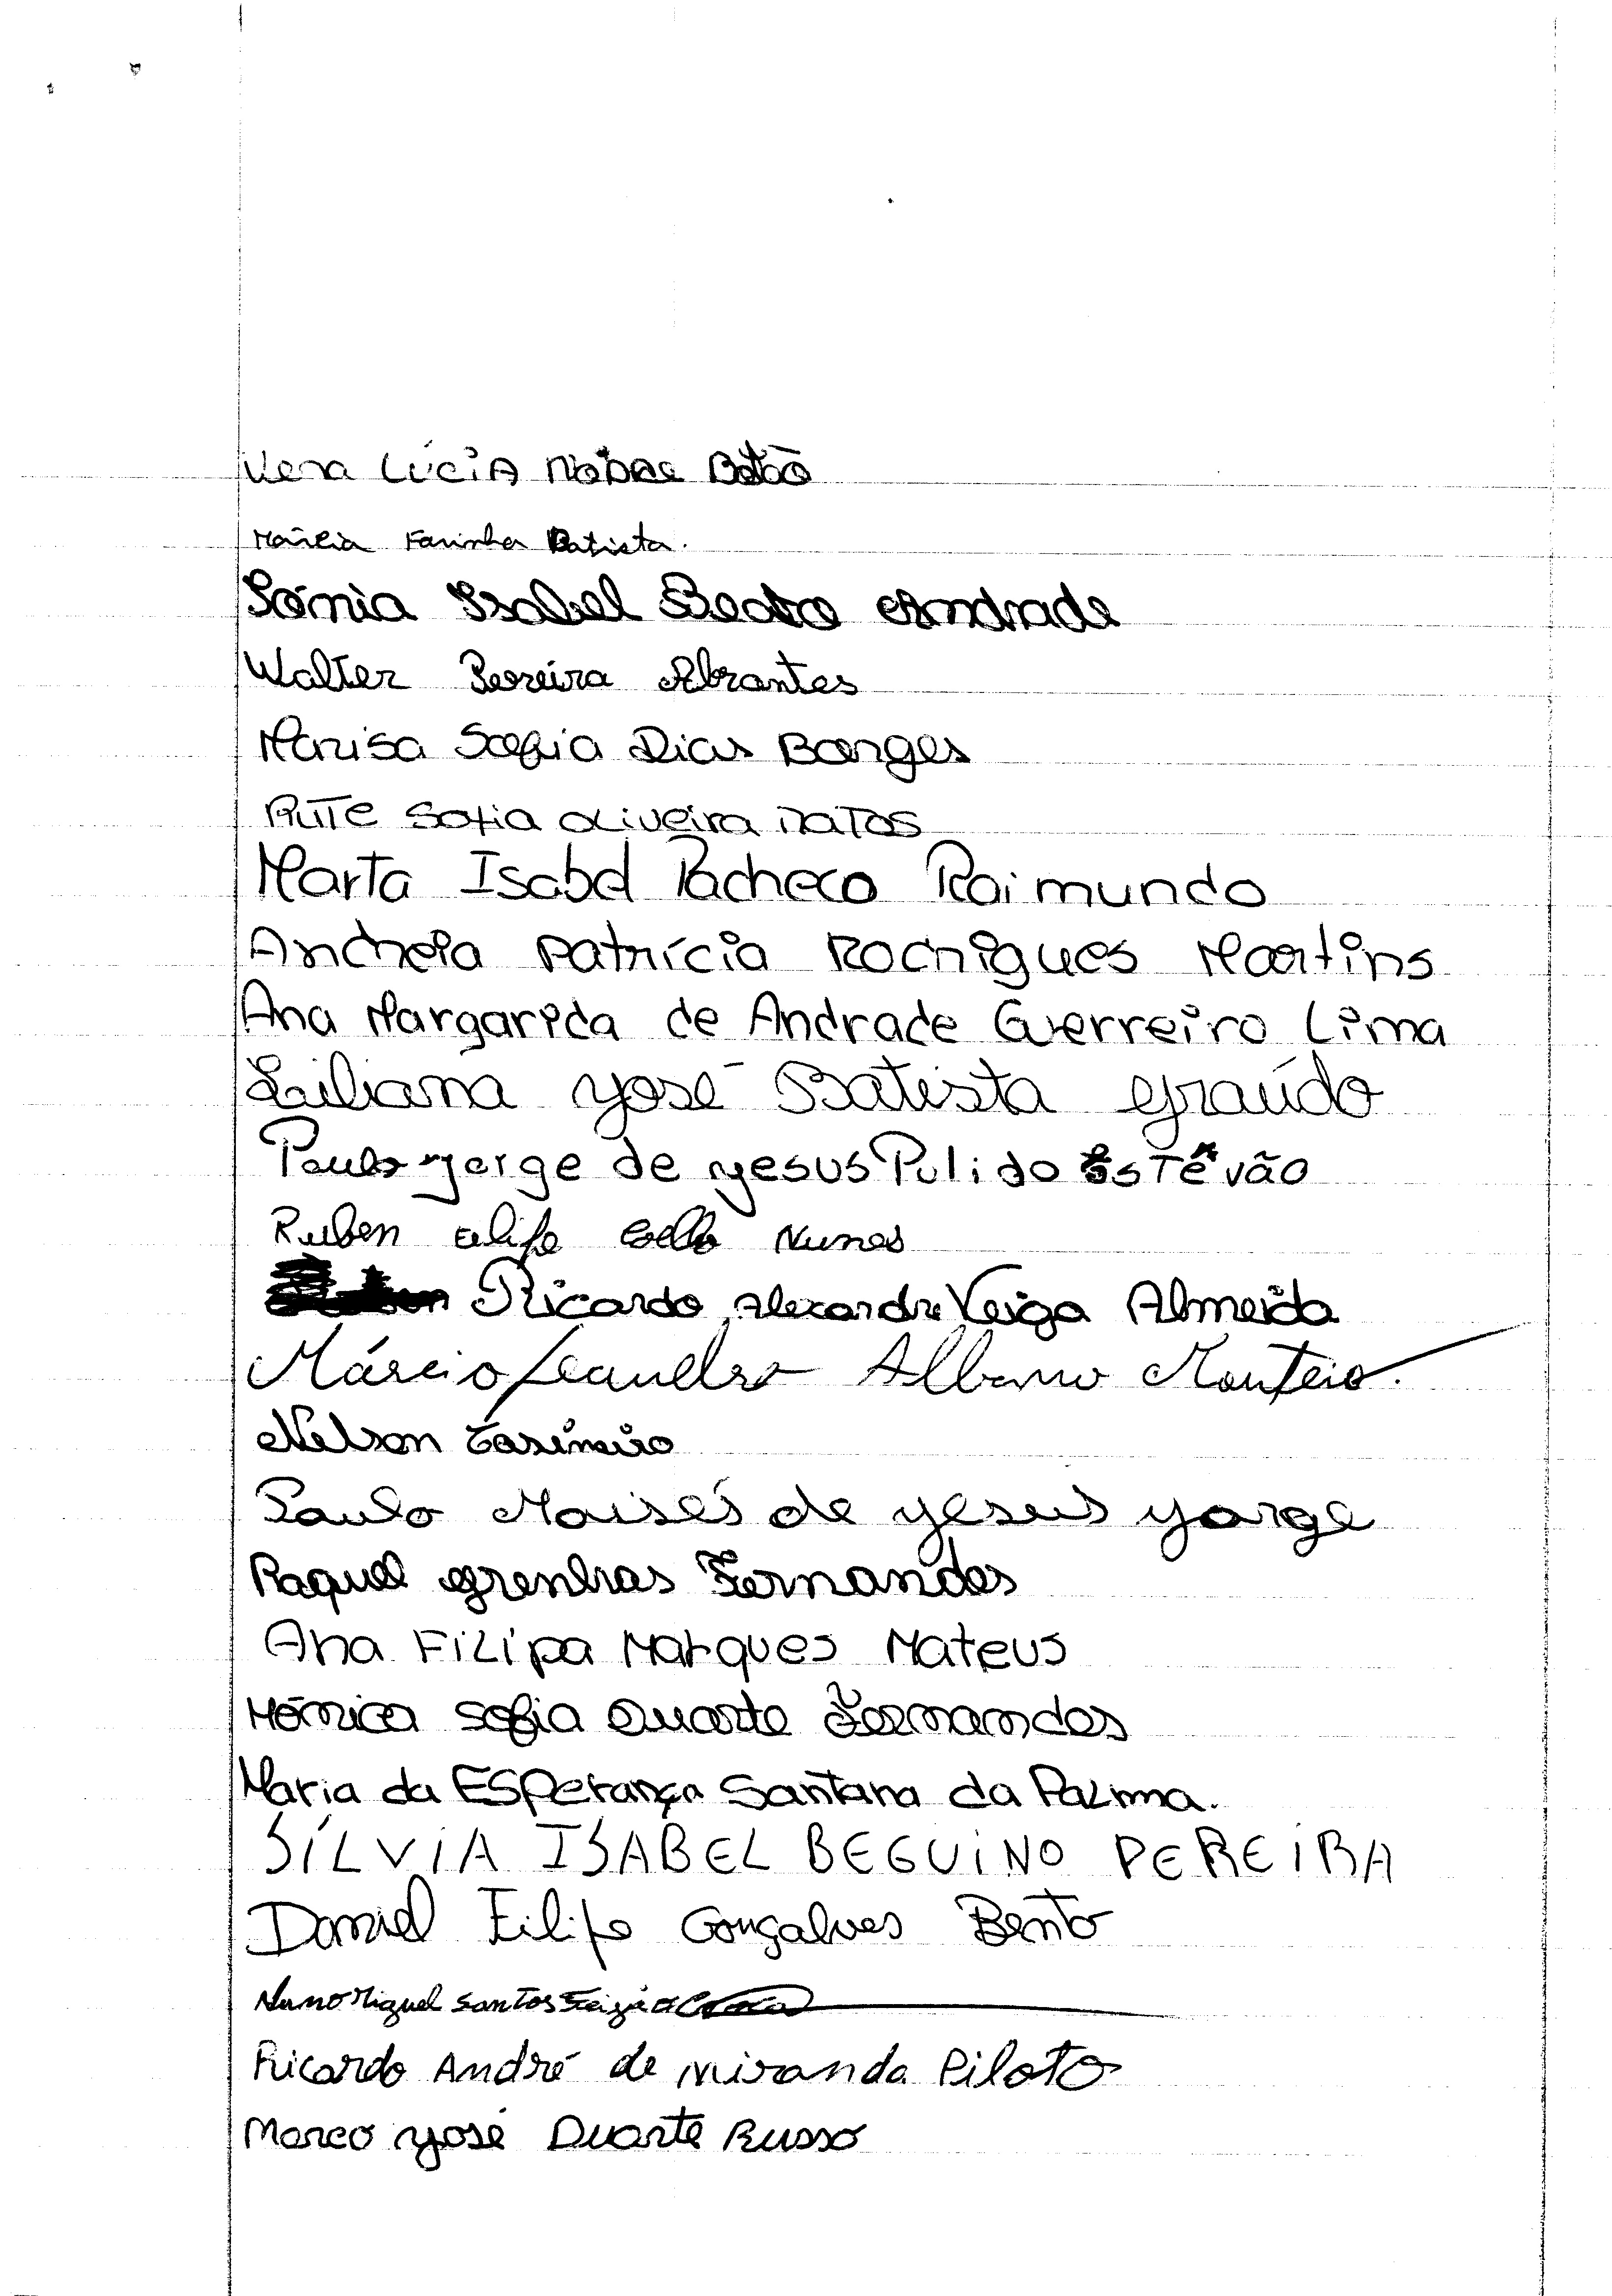 Vera Lúcia Nobre Botão
Marília Farinha Batista.
Sónia Isabel Beato Andrade
Walter Pereira Abrantes
Marisa Sofia Dias Borges
Rute Sofia Oliveira Matos
Marta Isabel Pacheco Raimundo
Andreia Patrícia Rodrigues Martins
Ana Margarida de Andrade Guerreiro Lima
Liliana José Batista Graúdo
Paulo Jorge de Jesus Pulido Estêvão
Ruben Filipe Nunes
Ricardo Alexandre Veiga Almeida
Márcio Leandro Albano Monteiro.
Nelson Casimiro
Paulo Moisés de Jesus Jorge
Raquel Grenhas Fernandes
Ana Filipa Marques Mateus
Mónica Sofia Duarte Fernandes
Maria da Esperança Santana da Palma.
SÍLVIA ISABEL BEGUINO PEREIRA
Daniel Filipe Gonçalves Bento
Nuno Miguel Santos
Ricardo André de Miranda Piloto
Marco José Duarte Russo